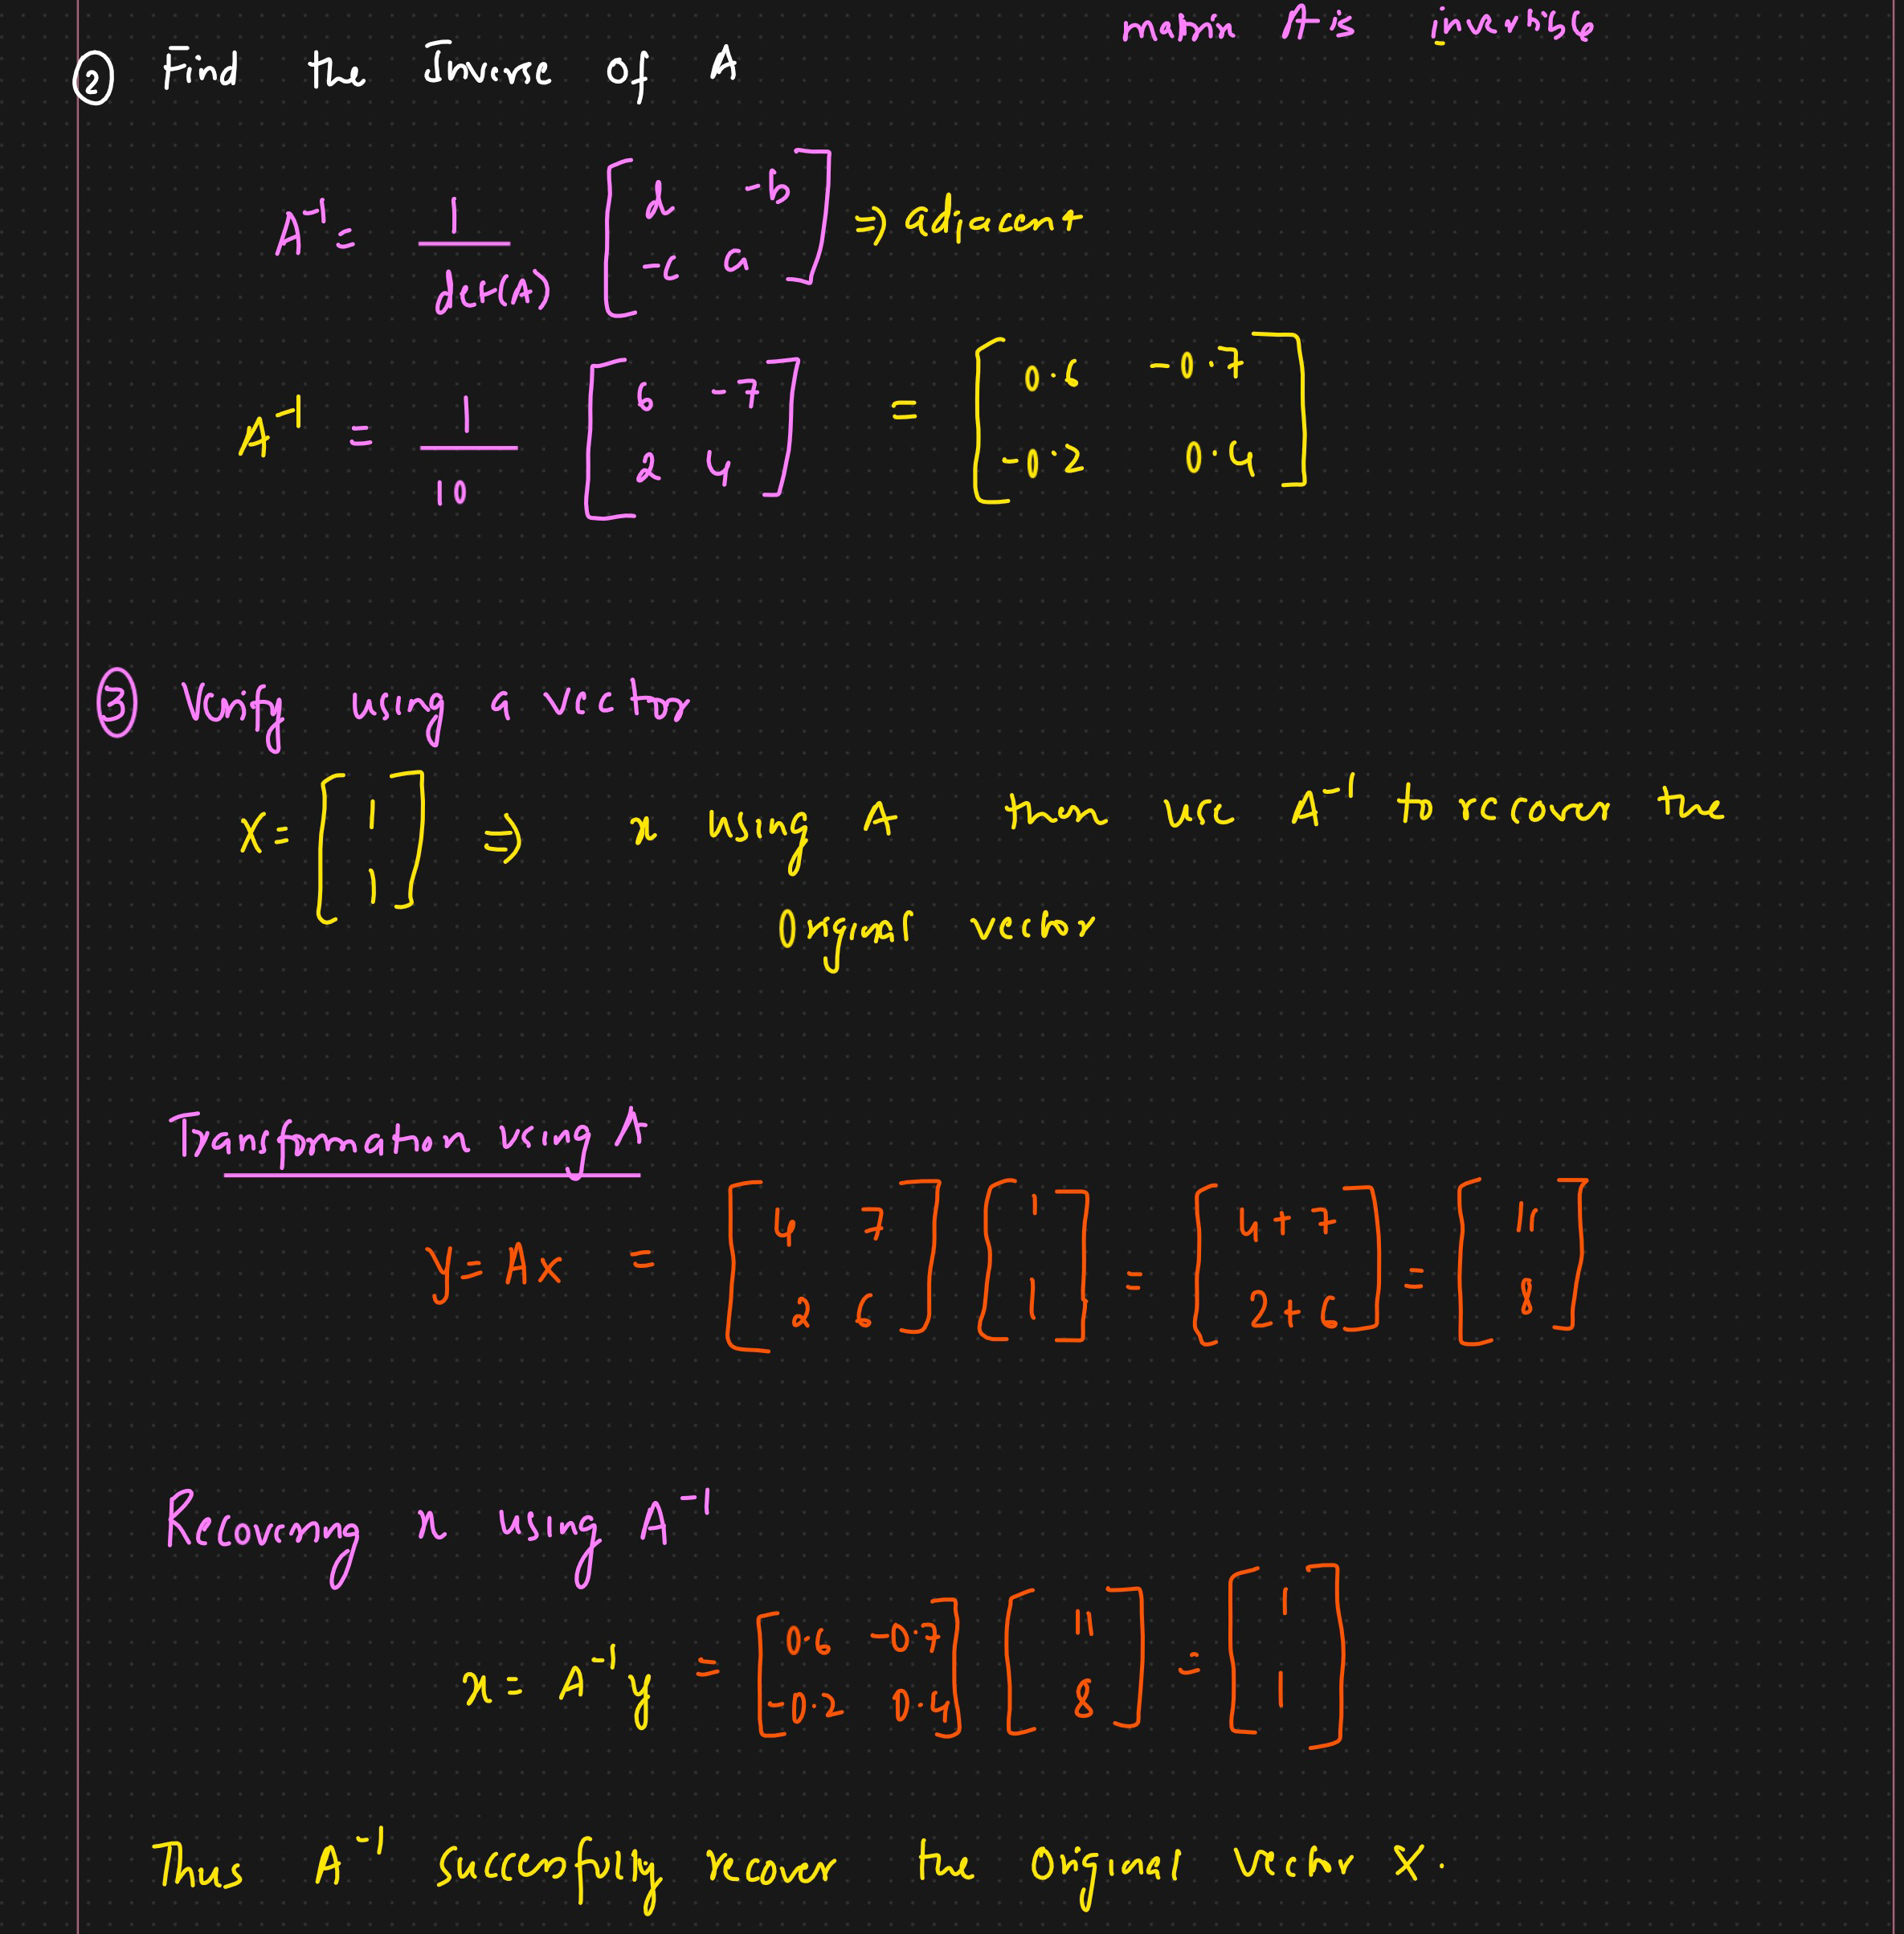 matrix A is invertible
② Find the Inverse of A
A⁻¹ = 1/det(A) [d -b; -c a] ⇒ adjacent
A⁻¹ = 1/10 [6 -7; 2 4] = [0.6 -0.7; -0.2 0.4]
③ Verify using a vector
X = [1; 1] ⇒ x using A then use A⁻¹ to recover the
Original vector
Transformation using A
y = Ax = [4 7; 2 6] [1; 1] = [4+7; 2+6] = [11; 8]
Recovering x using A⁻¹
x = A⁻¹y = [0.6 -0.7; -0.2 0.4] [11; 8] = [1; 1]
Thus A⁻¹ successfully recover the Original vector X.